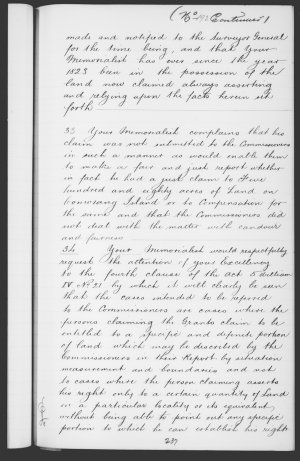 (No Continues)
made and notified to the Surveyor General
for the time being, and that Your
Memorialist has ever since the year
1823 been in the possession of the
land now claimed always asserting
and relying upon the facts herein set
forth
33 Your Memorialist complains that his
claim was not submitted to the Commissioners
in such a manner as would enable them
to make a fair and just report whether
in fact he had a just claim to Five
hundred and eighty acres of Land on
Island or to Compensation for
the same and that the Commissioners did
not deal with the matter with candour
and fairness
34 Your Memorialist would respectfully
request the attention of your Excellency
to the fourth clause of the act 5 William
IV No 21 by which it will clearly be seen
that the cases intended to be referred
to the Commissioners are cases where the
persons claiming the Grants claim to be
entitled to a specific and definite portion
of land which may be described by the
Commissioners in their Report by situation
measurement and boundaries and not
to cases where the person claiming asserts
his right only to a certain quantity of Land
in a particular locality or its equivalent
without being able to point out any specific
portion to which he can establish his right
237